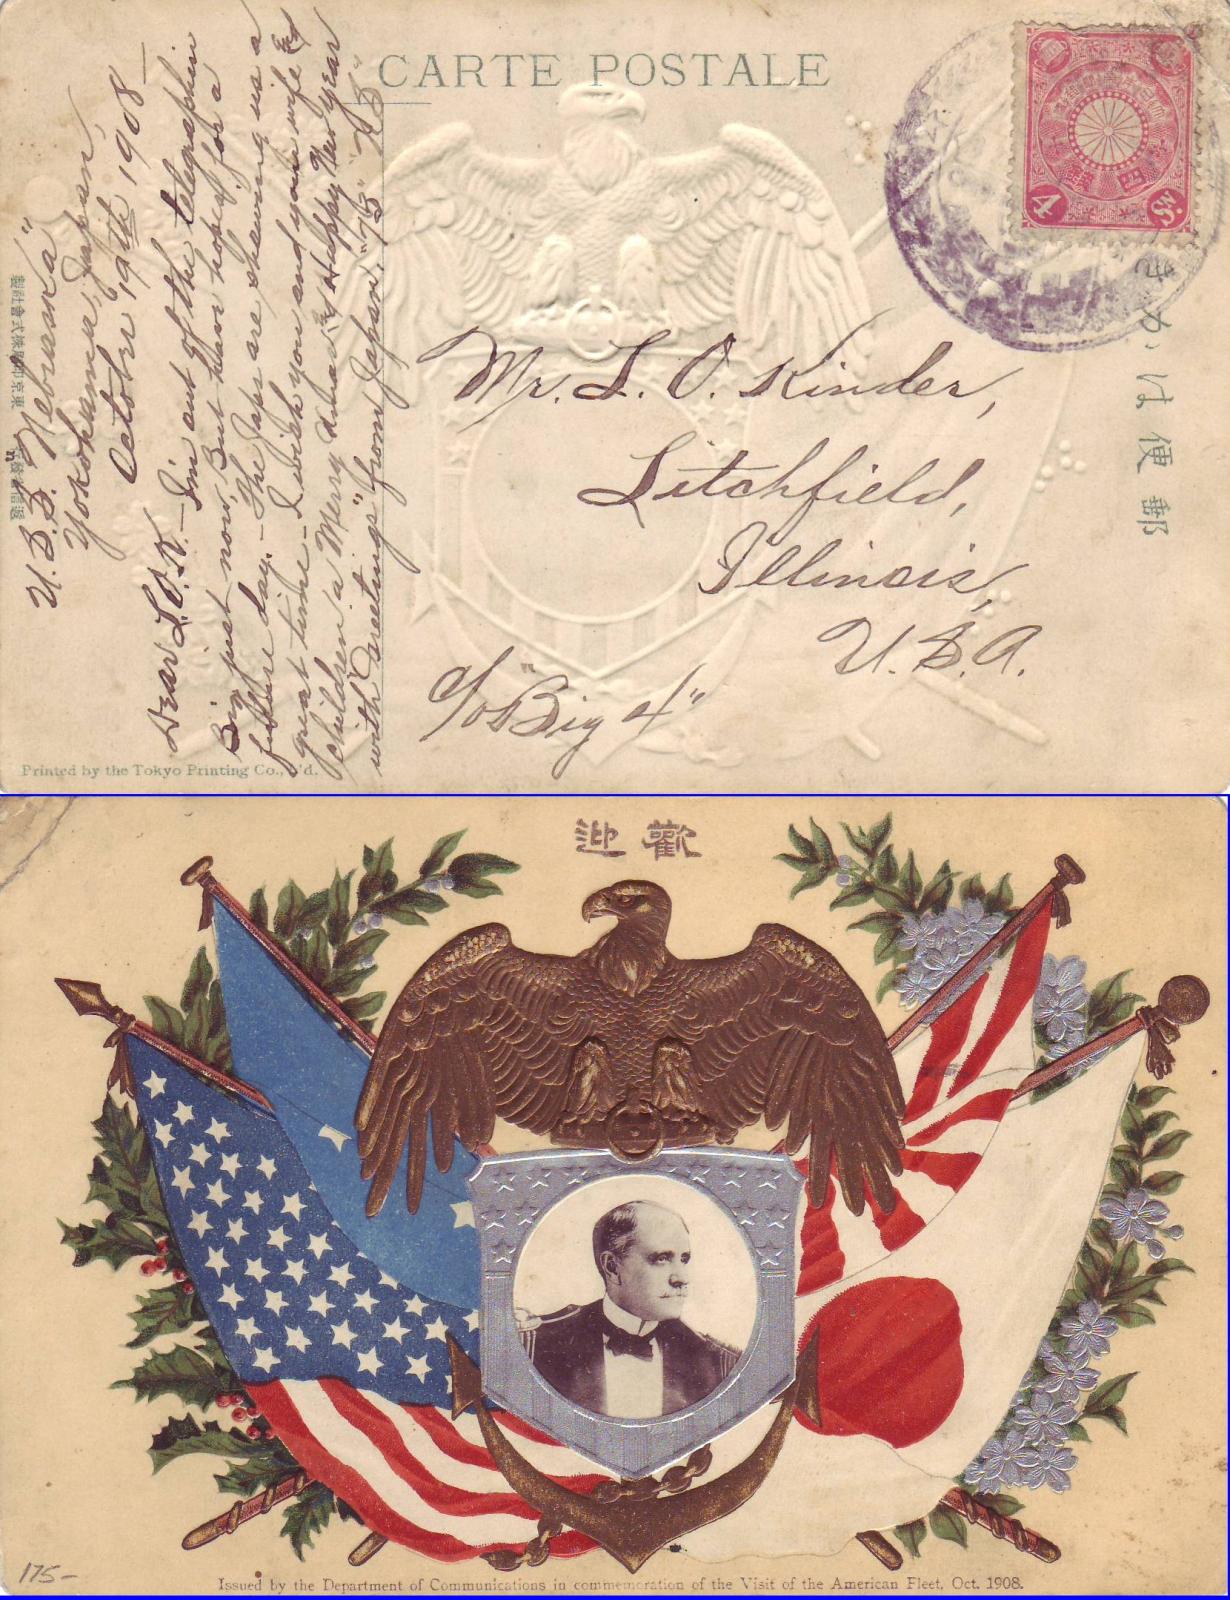 CARTE POSTALE
4
4 Sn.
きかは便郵
U.S.S. "Nebraska"
Yokohama, Japan,
October 19th 1908 —
Dear L.O.K. — I'm out of the telegraphic
Biz just now, but have hopes for a
future day. — The Japs are showing us a
great time — I wish you and your wife &
children a Merry Xmas & Happy New Year
with greetings from Japan, "73"
Mr. L. O. Kinder,
Litchfield,
Illinois,
U.S.A.
c/o "Big 4"
Printed by the Tokyo Printing Co., L'd.
迎歡
175-
Issued by the Department of Communications in commemoration of the Visit of the American Fleet, Oct. 1908.